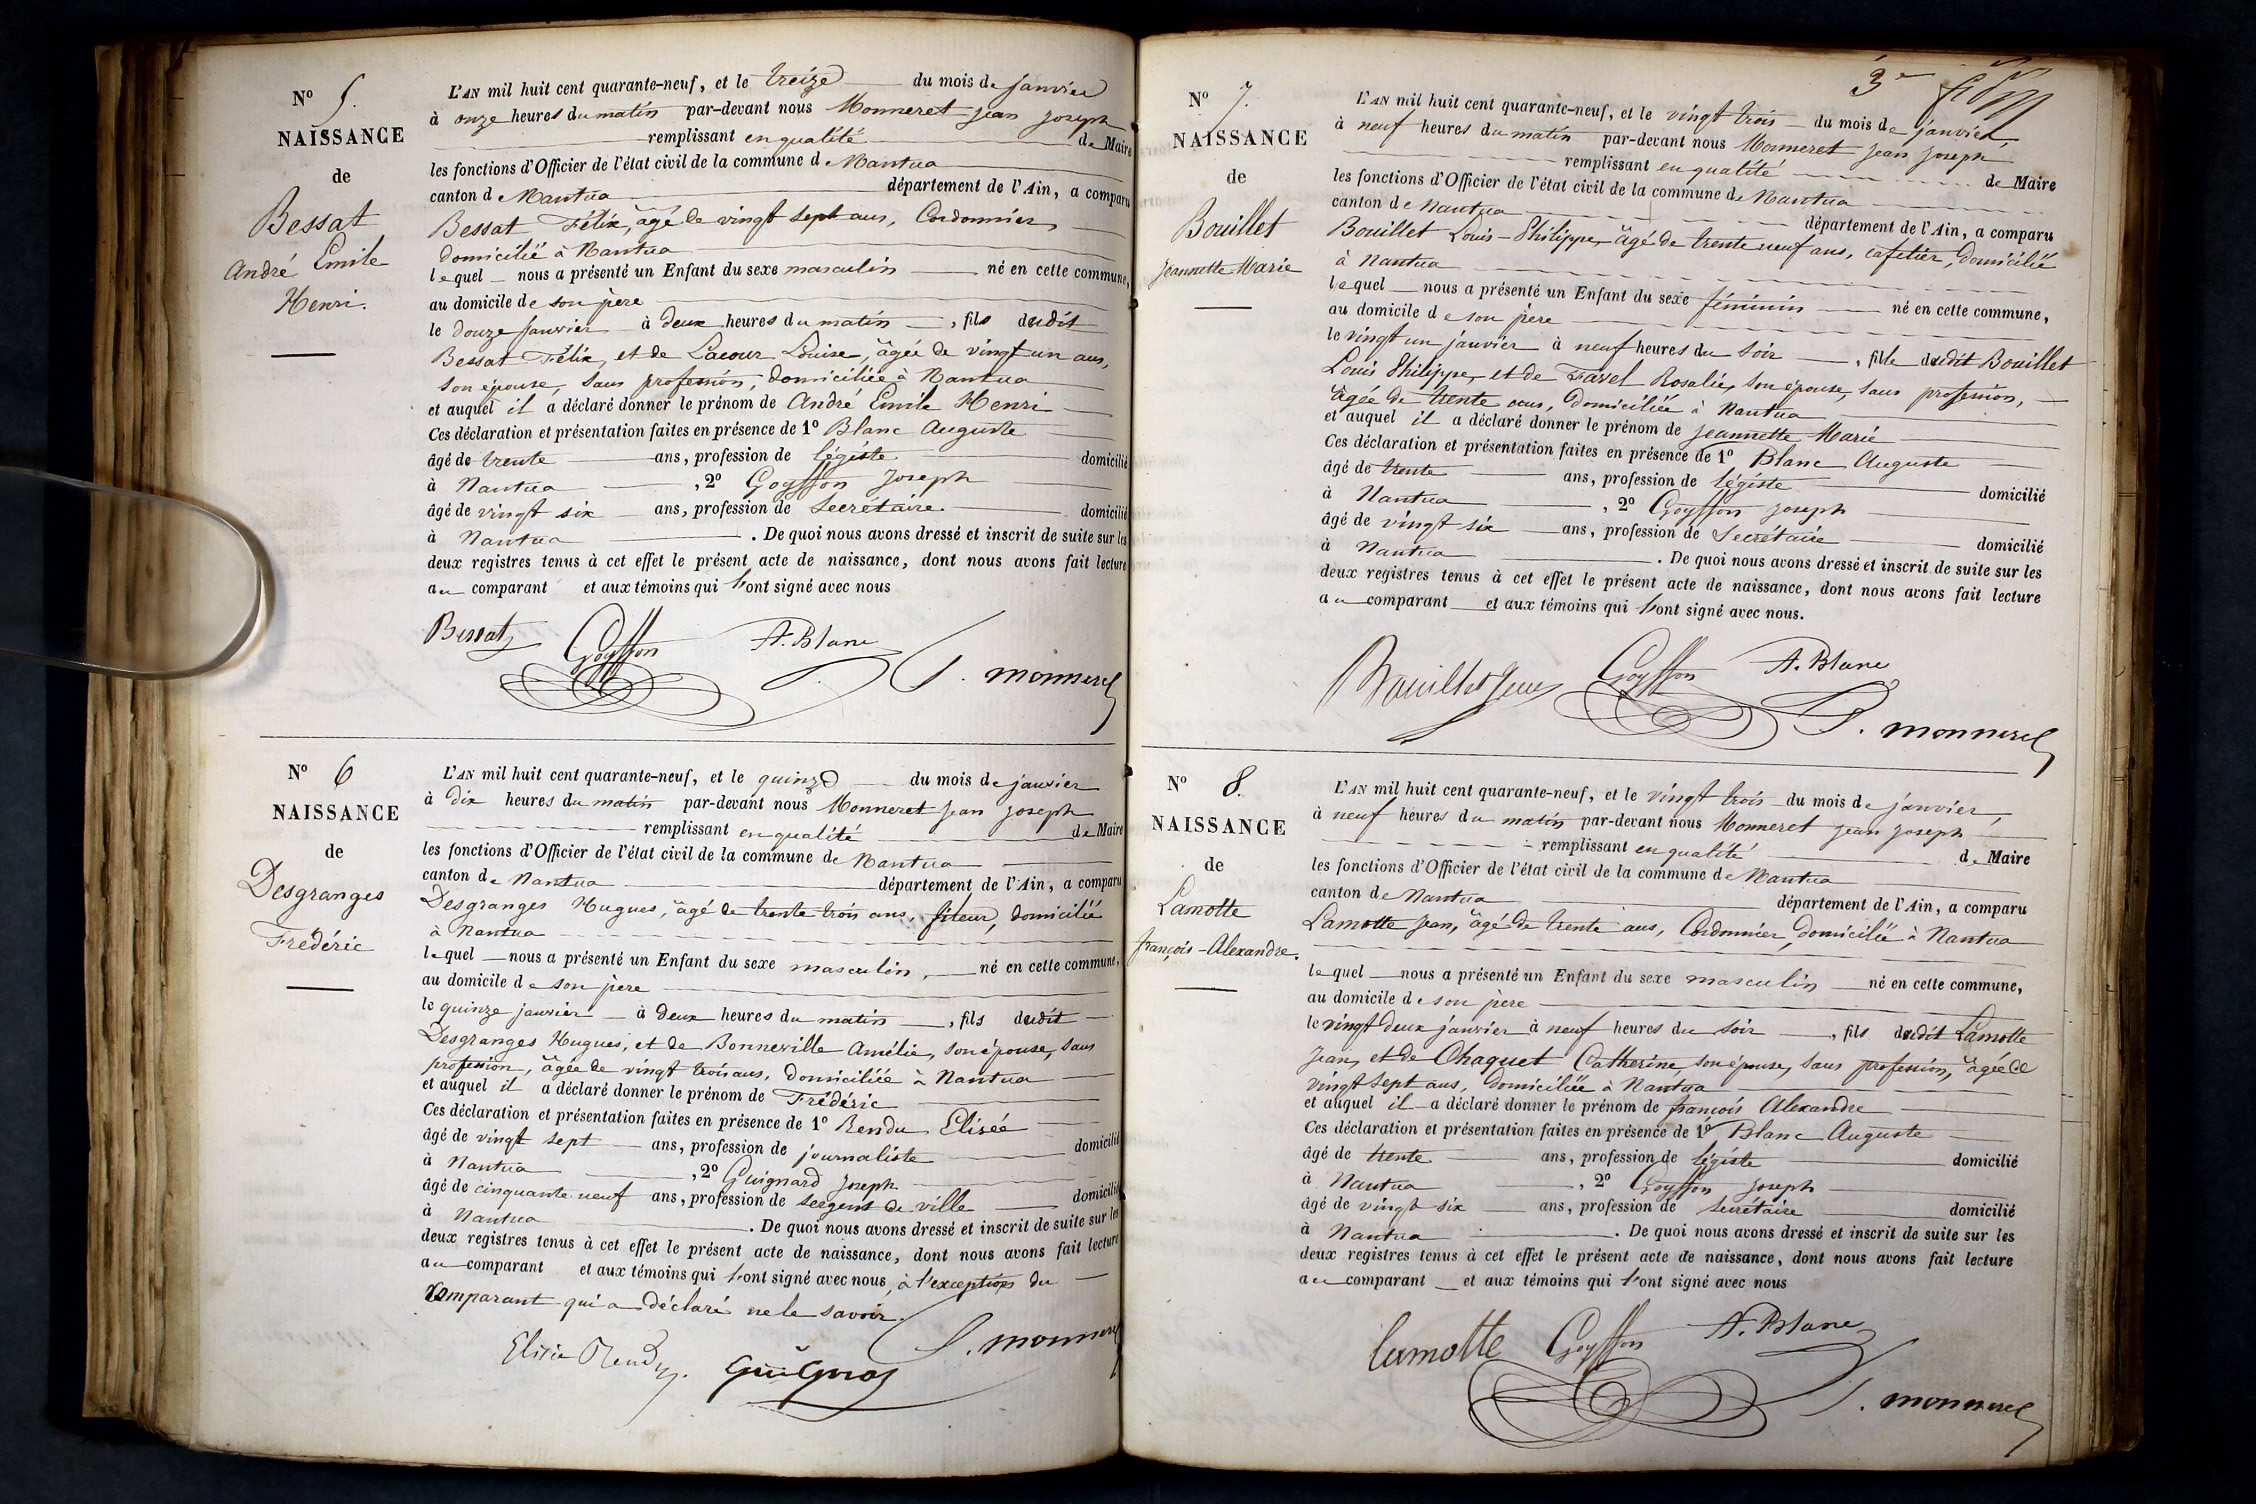 N° 5.
NAISSANCE
de
Bessat
André Emile
Henri.
L'AN mil huit cent quarante-neuf, et le treize du mois de janvier
à onze heures du matin par-devant nous Monneret jean joseph
remplissant en qualité de Maire
les fonctions d'Officier de l'état civil de la commune de Nantua
canton de Nantua département de l'Ain, a comparu
Bessat Félix, âgé de vingt sept ans, Cordonnier,
domicilié à Nantua
lequel nous a présenté un Enfant du sexe masculin né en cette commune,
au domicile de son père
le douze janvier à deux heures du matin, fils dudit
Bessat Félix, et de Lacour Louise, âgée de vingt un ans,
son épouse, sans profession, domiciliée à Nantua
et auquel il a déclaré donner le prénom de André Emile Henri
Ces déclaration et présentation faites en présence de 1° Blanc Auguste
âgé de trente ans, profession de légiste domicilié
à Nantua, 2° Goyffon Joseph
âgé de vingt six ans, profession de Secrétaire domicilié
à Nantua. De quoi nous avons dressé et inscrit de suite sur les
deux registres tenus à cet effet le présent acte de naissance, dont nous avons fait lecture
au comparant et aux témoins qui l'ont signé avec nous
Bessat Goyffon A. Blanc J. monneret
N° 6
NAISSANCE
de
Desgranges
Frédéric
L'AN mil huit cent quarante-neuf, et le quinze du mois de janvier
à dix heures du matin par-devant nous Monneret jean joseph
remplissant en qualité de Maire
les fonctions d'Officier de l'état civil de la commune de Nantua
canton de Nantua département de l'Ain, a comparu
Desgranges Hugues, âgé de trente trois ans, fileur, domicilié
à Nantua
lequel nous a présenté un Enfant du sexe masculin, né en cette commune,
au domicile de son père
le quinze janvier à deux heures du matin, fils dudit
Desgranges Hugues, et de Bonneville Amélie, son épouse, sans
profession, âgée de vingt trois ans, domiciliée à Nantua
et auquel il a déclaré donner le prénom de Frédéric
Ces déclaration et présentation faites en présence de 1° Rendu Elisée
âgé de vingt sept ans, profession de journaliste domicilié
à Nantua, 2° Guignard joseph
âgé de cinquante neuf ans, profession de sergent de ville domicilié
à Nantua. De quoi nous avons dressé et inscrit de suite sur les
deux registres tenus à cet effet le présent acte de naissance, dont nous avons fait lecture
au comparant et aux témoins qui l'ont signé avec nous, à l'exception du
comparant qui a déclaré ne le savoir.
Elisée Rendu J. monneret
3e
N° 7.
NAISSANCE
de
Bouillet
Jeannette Marie
L'AN mil huit cent quarante-neuf, et le vingt trois du mois de janvier,
à neuf heures du matin par-devant nous Monneret Jean Joseph
remplissant en qualité de Maire
les fonctions d'Officier de l'état civil de la commune de Nantua
canton de Nantua département de l'Ain, a comparu
Bouillet Louis-Philippe, âgé de trente neuf ans, cafetier, domicilié
à Nantua
lequel nous a présenté un Enfant du sexe féminin né en cette commune,
au domicile de son père
le vingt un janvier à neuf heures du soir, fille dudit Bouillet
Louis Philippe, et de Favel Rosalie, son épouse, sans profession,
âgée de trente ans, domiciliée à Nantua
et auquel il a déclaré donner le prénom de jeannette Marie
Ces déclaration et présentation faites en présence de 1° Blanc Auguste
âgé de trente ans, profession de légiste domicilié
à Nantua, 2° Goyffon joseph
âgé de vingt six ans, profession de Secrétaire domicilié
à Nantua. De quoi nous avons dressé et inscrit de suite sur les
deux registres tenus à cet effet le présent acte de naissance, dont nous avons fait lecture
au comparant et aux témoins qui l'ont signé avec nous.
Goyffon A. Blanc J. monneret
N° 8.
NAISSANCE
de
Lamotte
françois-Alexandre.
L'AN mil huit cent quarante-neuf, et le vingt trois du mois de janvier,
à neuf heures du matin par-devant nous Monneret jean joseph
remplissant en qualité de Maire
les fonctions d'Officier de l'état civil de la commune de Nantua
canton de Nantua département de l'Ain, a comparu
Lamotte Jean, âgé de trente ans, Cordonnier, domicilié à Nantua
lequel nous a présenté un Enfant du sexe masculin né en cette commune,
au domicile de son père
le vingt deux janvier à neuf heures du soir, fils dudit Lamotte
Jean, et de Chaquet Catherine, son épouse, sans profession, âgée de
vingt sept ans, domiciliée à Nantua
et auquel il a déclaré donner le prénom de françois Alexandre
Ces déclaration et présentation faites en présence de 1° Blanc Auguste
âgé de trente ans, profession de légiste domicilié
à Nantua, 2° Goyffon joseph
âgé de vingt six ans, profession de secrétaire domicilié
à Nantua. De quoi nous avons dressé et inscrit de suite sur les
deux registres tenus à cet effet le présent acte de naissance, dont nous avons fait lecture
au comparant et aux témoins qui l'ont signé avec nous
lamotte Goyffon A. Blanc J. monneret